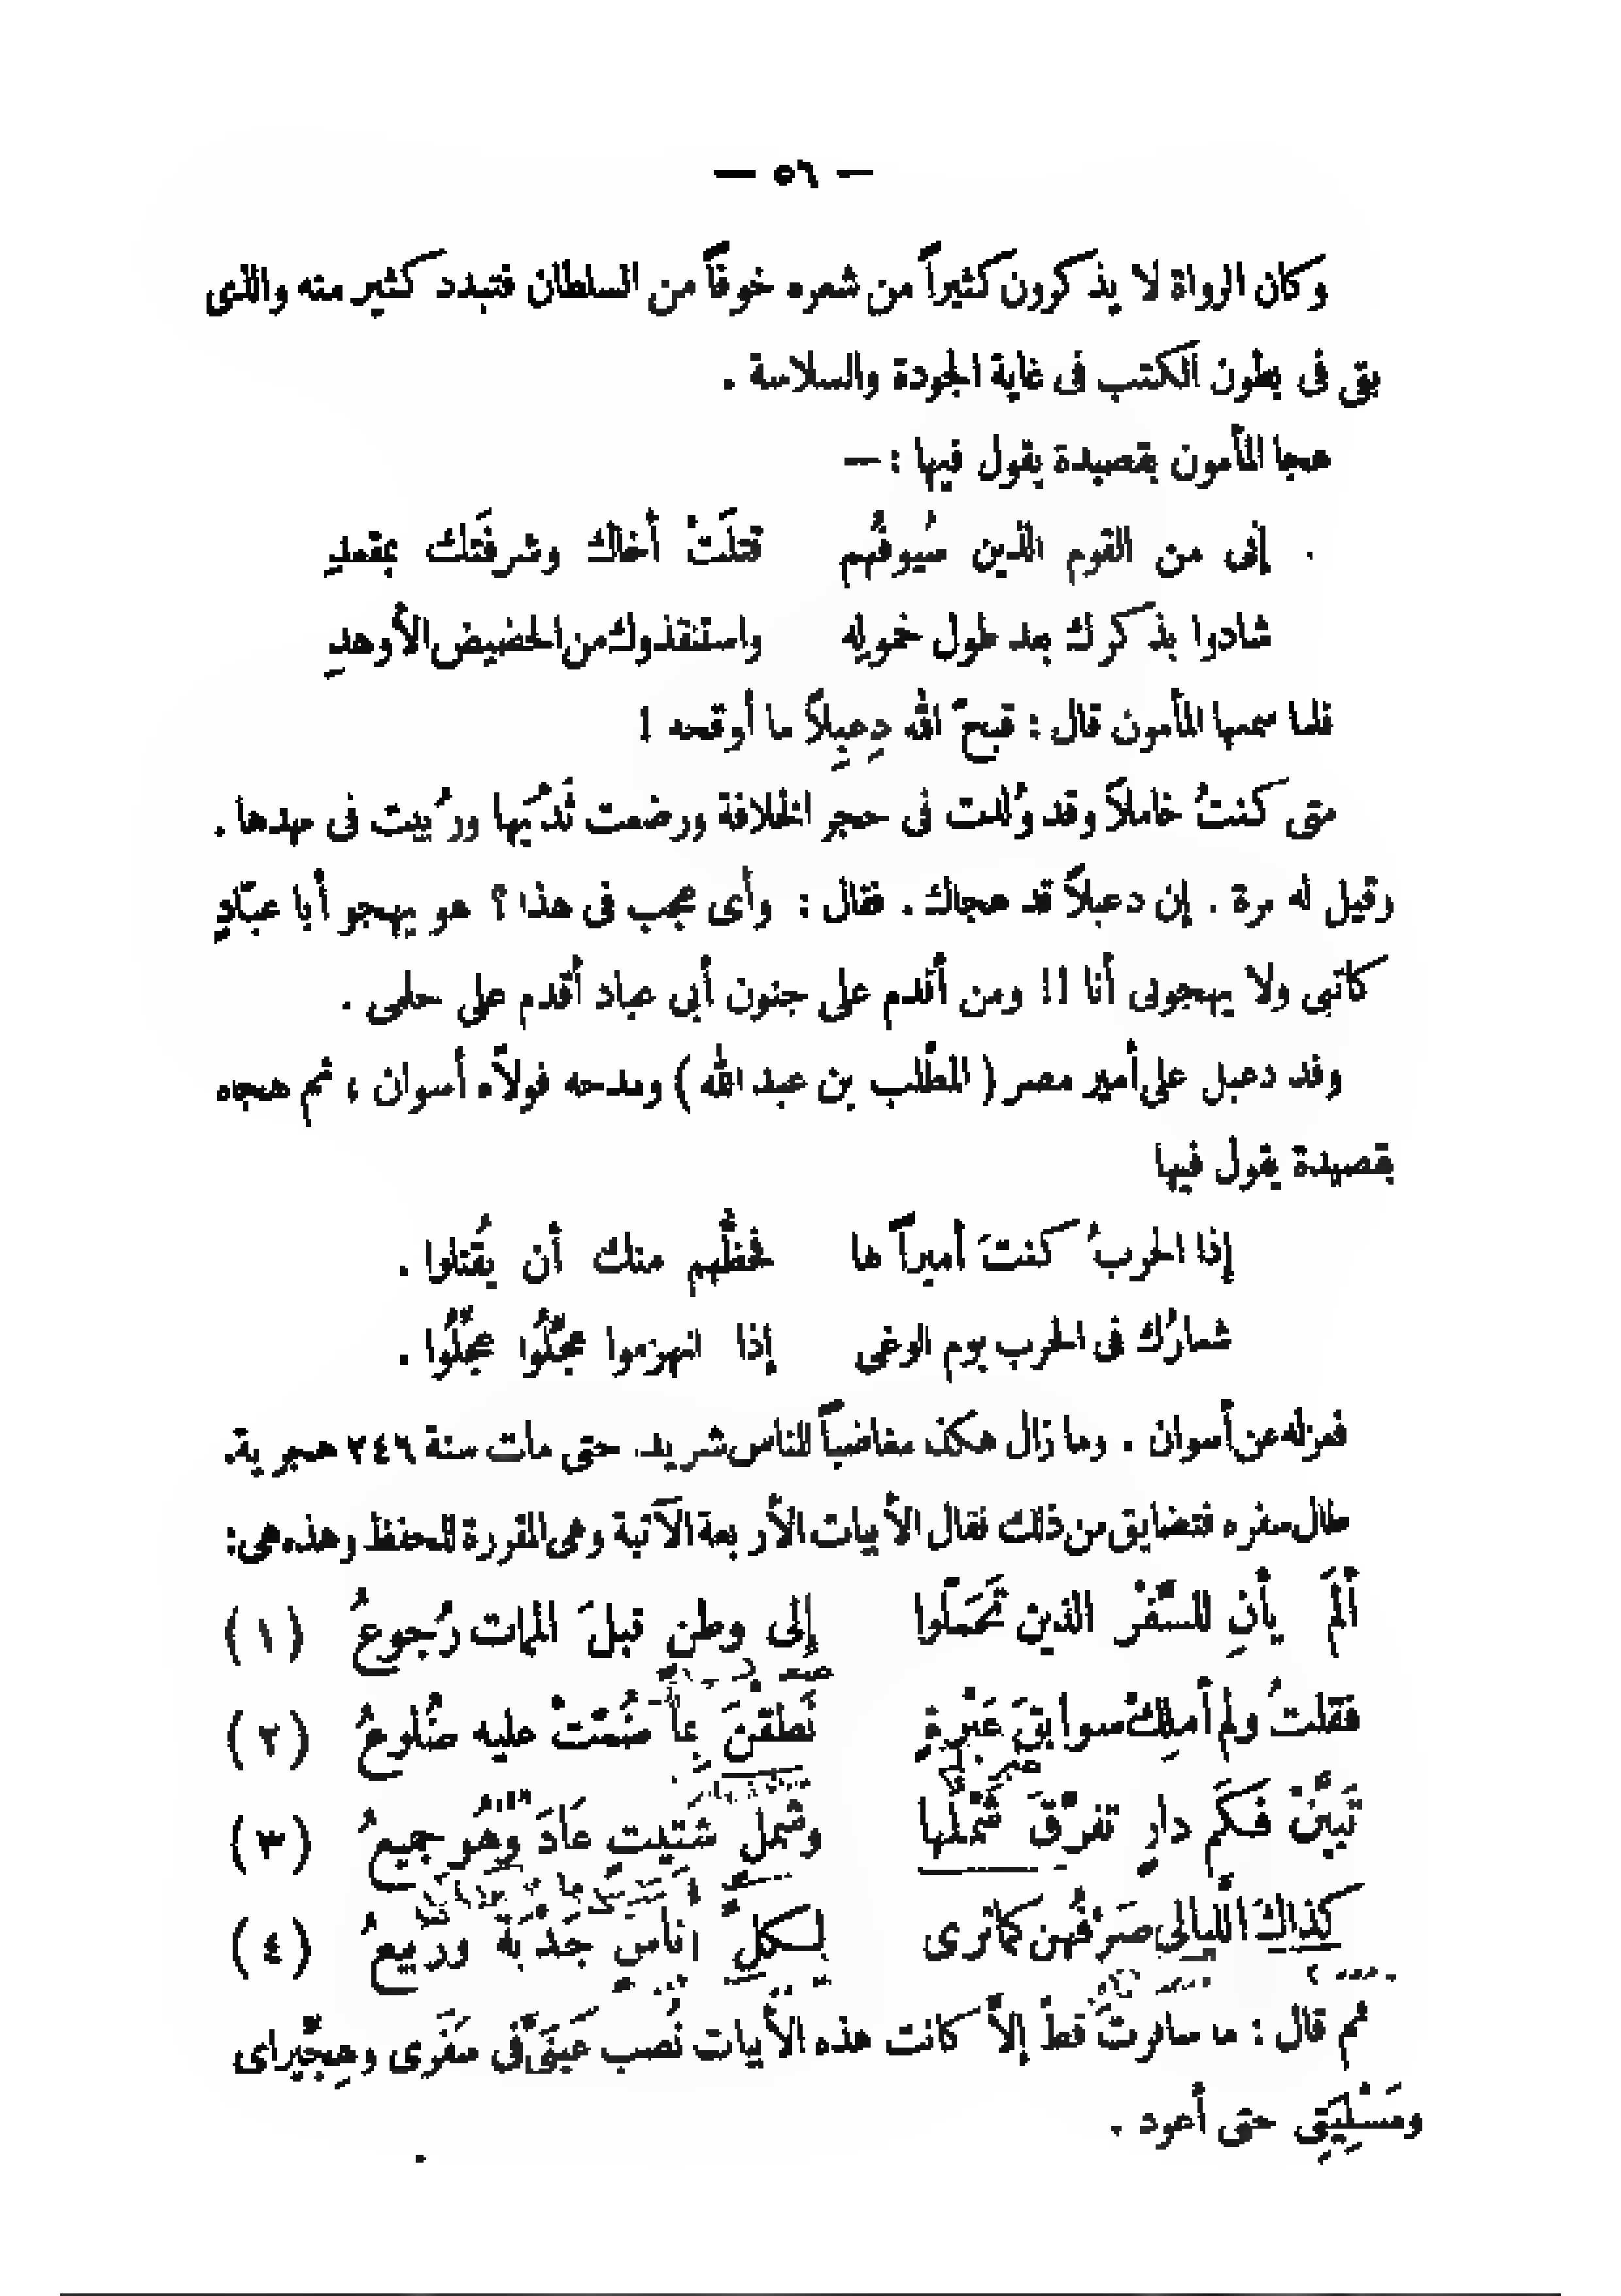 — ٥٦ —
وكان الرواة لا يذكرون كثيراً من شعره خوفاً من السلطان فتبدد كثير منه والذى
بقى فى بطون الكتب فى غاية الجودة والسلاسة .
هجا المأمون بقصيدة يقول فيها : —
إنى من القوم الذين سُيوفُهم قتلَتْ أخاك وشرفَتك بمقعدِ
شادوا بذكرك بعد طول خموله واستنقذوك من الحضيض الأوهدِ
فلما سمعها المأمون قال : قبحَ الله دِعبِلاً ما أوقحه !
متى كنتُ خاملاً وقد وُلدت فى حجر الخلافة ورضعت ثَديَها ورُبيت فى مهدها .
وقيل له مرة . إن دعبلاً قد هجاك . فقال : وأى عجب فى هذا ؟ هو يهجو أبا عبّادٍ
كاتبى ولا يهجونى أنا !! ومن أقدم على جنون أبى عباد أقدم على حلمى .
وفد دعبل على أمير مصر ( المطّلب بن عبد الله ) ومدحه فولاّه أسوان ، ثم هجاه
بقصيدة يقول فيها
إذا الحربُ كنتَ أميراً لها فحظُّهم منك أن يُقتلوا .
شعارُك فى الحرب يوم الوغى إذا انهزموا عجّلُوا عجّلُوا .
فعزله عن أسوان . وما زال هكذ مغاضباً للناس شريد حتى مات سنة ٢٤٦ هجرية.
طال سفره فتضايق من ذلك فقال الأبيات الأربعة الآتية وهى المقررة للحفظ وهذه هى:
ألَم يأنِ للسّفْر الذين تَحَمَلّوا إلى وطنٍ قبلَ الممات رُجوعُ (١)
فقلتُ ولم أملِكْ سوابقَ عَبْرةٍ نَطَقنَ بِمَا ضُمّتْ عليه ضُلوعُ (٢)
تَبيّنْ فَكَم دارٍ تفرّقَ شَمْلُها وشملٍ شَتيتٍ عَادَ وهُو جميعُ (٣)
كذاكَ الليالى صَرْفُهن كما ترى لكلِّ أناسٍ جَدْبَة وربيعُ (٤)
ثم قال : ما سافرتُ قطّ إلاّ كانت هذه الأبيات نُصب عَينَىّ فى سَفَرى وهِجّيراى
ومَسْلِيَتِى حتى أعود .